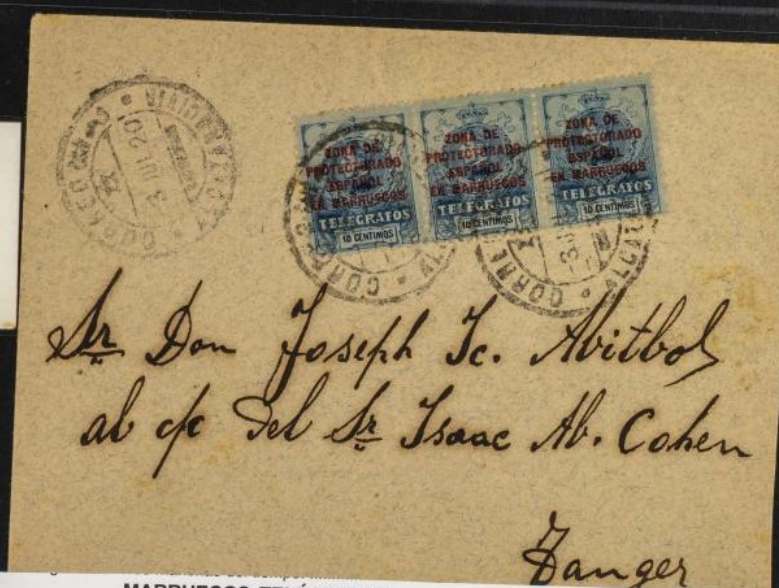 3 JUL 20
ZONA DE
PROTECTORADO
ESPAÑOL
EN MARRUECOS
TELEGRAFOS
10 CENTIMOS
ZONA DE
PROTECTORADO
ESPAÑOL
EN MARRUECOS
TELEGRAFOS
10 CENTIMOS
ZONA DE
PROTECTORADO
ESPAÑOL
EN MARRUECOS
TELEGRAFOS
10 CENTIMOS
Sr Don Joseph Is. Abitbol
al c/c del Sr Isaac Ab. Cohen
Tanger